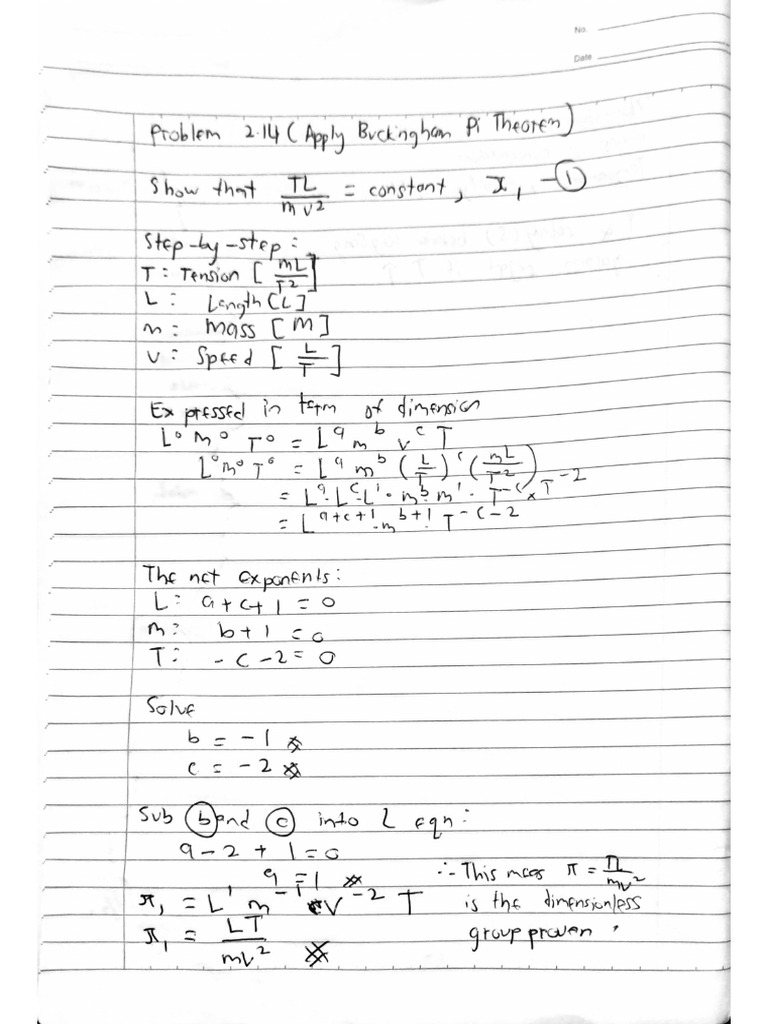 No.
Date
Problem 2.14 (Apply Buckingham Pi Theorem)
Show that TL/mv² = constant, π₁ - ①
Step-by-step:
T: Tension [mL/T²]
L: Length [L]
m: mass [M]
v: Speed [L/T]
Expressed in term of dimension
L⁰ M⁰ T⁰ = Lᵃ mᵇ vᶜ T
L⁰M⁰T⁰ = Lᵃ mᵇ (L/T)ᶜ (mL/T²)
= Lᵃ·Lᶜ·L¹·mᵇ·m¹·T⁻ᶜ × T⁻²
= Lᵃ⁺ᶜ⁺¹·mᵇ⁺¹·T⁻ᶜ⁻²
The net exponents:
L: a+c+1 = 0
m: b+1 = 0
T: -c-2 = 0
Solve
b = -1
c = -2
Sub ⓑ and ⓒ into L eqn:
a-2+1=0
a=1
π₁ = L¹ m⁻¹ v⁻² T
π₁ = LT/mv²
∴ This means π = TL/mv²
is the dimensionless
group proven.